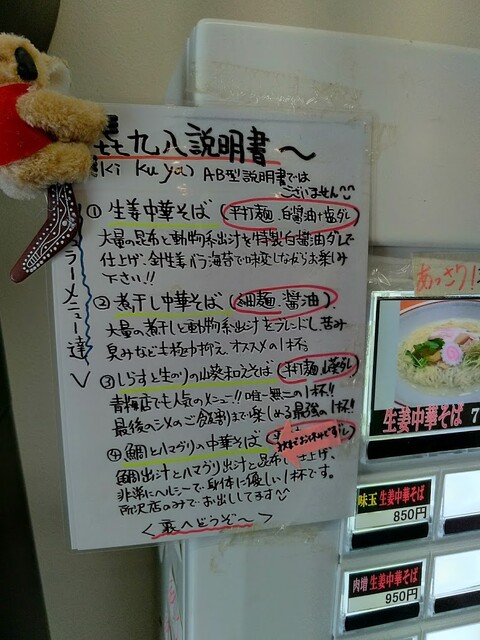 喜九八説明書〜
(ki ku ya) AB型説明書では
ございません
ラーメニュー達
① 生姜中華そば (平打麺、白醤油+塩ダレ)
大量の昆布と動物系出汁を特製白醤油ダレで
仕上げ、針生姜、バラ海苔で味変しながらお楽しみ
下さい!!
② 煮干し中華そば (細麺、醤油)
大量の煮干しと動物系出汁をブレンドし、苦み
臭みなどを極力抑え、オススメの1杯。
③ しらすと生のりの 和えそば (平打麺、塩ダレ)
青梅店でも人気のメニュー!! 唯一無二の1杯!!
最後のシメのご飯割まで楽しめる最強の1杯!!
④ 鯛とハマグリの中華そば
鯛出汁とハマグリ出汁と昆布 仕上げ、
非常にヘルシーで身体に優しい1杯です。
所沢店のみでお出ししてます
<裏へどうぞ〜>
あっさり!
生姜中華そば 7
味玉 生姜中華そば
850円
肉増 生姜中華そば
950円